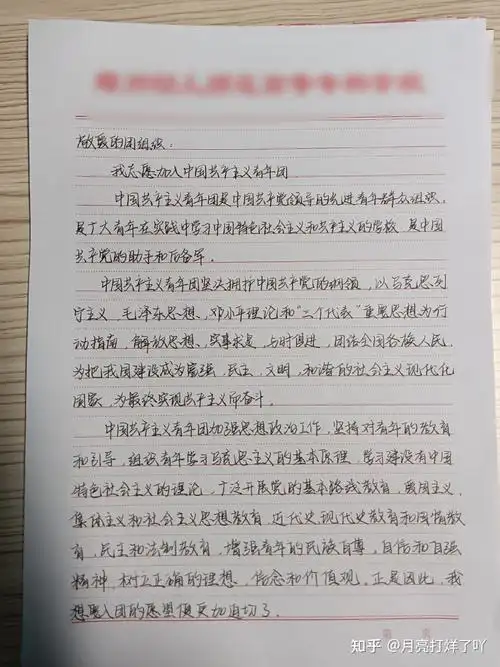 敬爱的团组织：
我志愿加入中国共产主义青年团
中国共产主义青年团是中国共产党领导的先进青年群众组织，
是广大青年在实践中学习中国特色社会主义和共产主义的学校，是中国
共产党的助手和后备军。
中国共产主义青年团坚决拥护中国共产党的纲领，以马克思列
宁主义、毛泽东思想、邓小平理论和“三个代表”重要思想为行
动指南，解放思想，实事求是，与时俱进，团结全国各族人民，
为把我国建设成为富强，民主，文明，和谐的社会主义现代化
国家，为最终实现共产主义而奋斗。
中国共产主义青年团加强思想政治工作，坚持对青年的教育
和引导，组织青年学习马克思主义的基本原理，学习建设有中国
特色社会主义的理论，广泛开展党的基本路线教育，爱国主义，
集体主义和社会主义思想教育，近代史，现代史教育和国情教
育，民主和法制教育，增强青年的民族自尊，自信和自强
精神，树立正确的理想，信念和价值观。正是因此，我
想要入团的愿望便更加迫切了。
知乎 @月亮打烊了吖